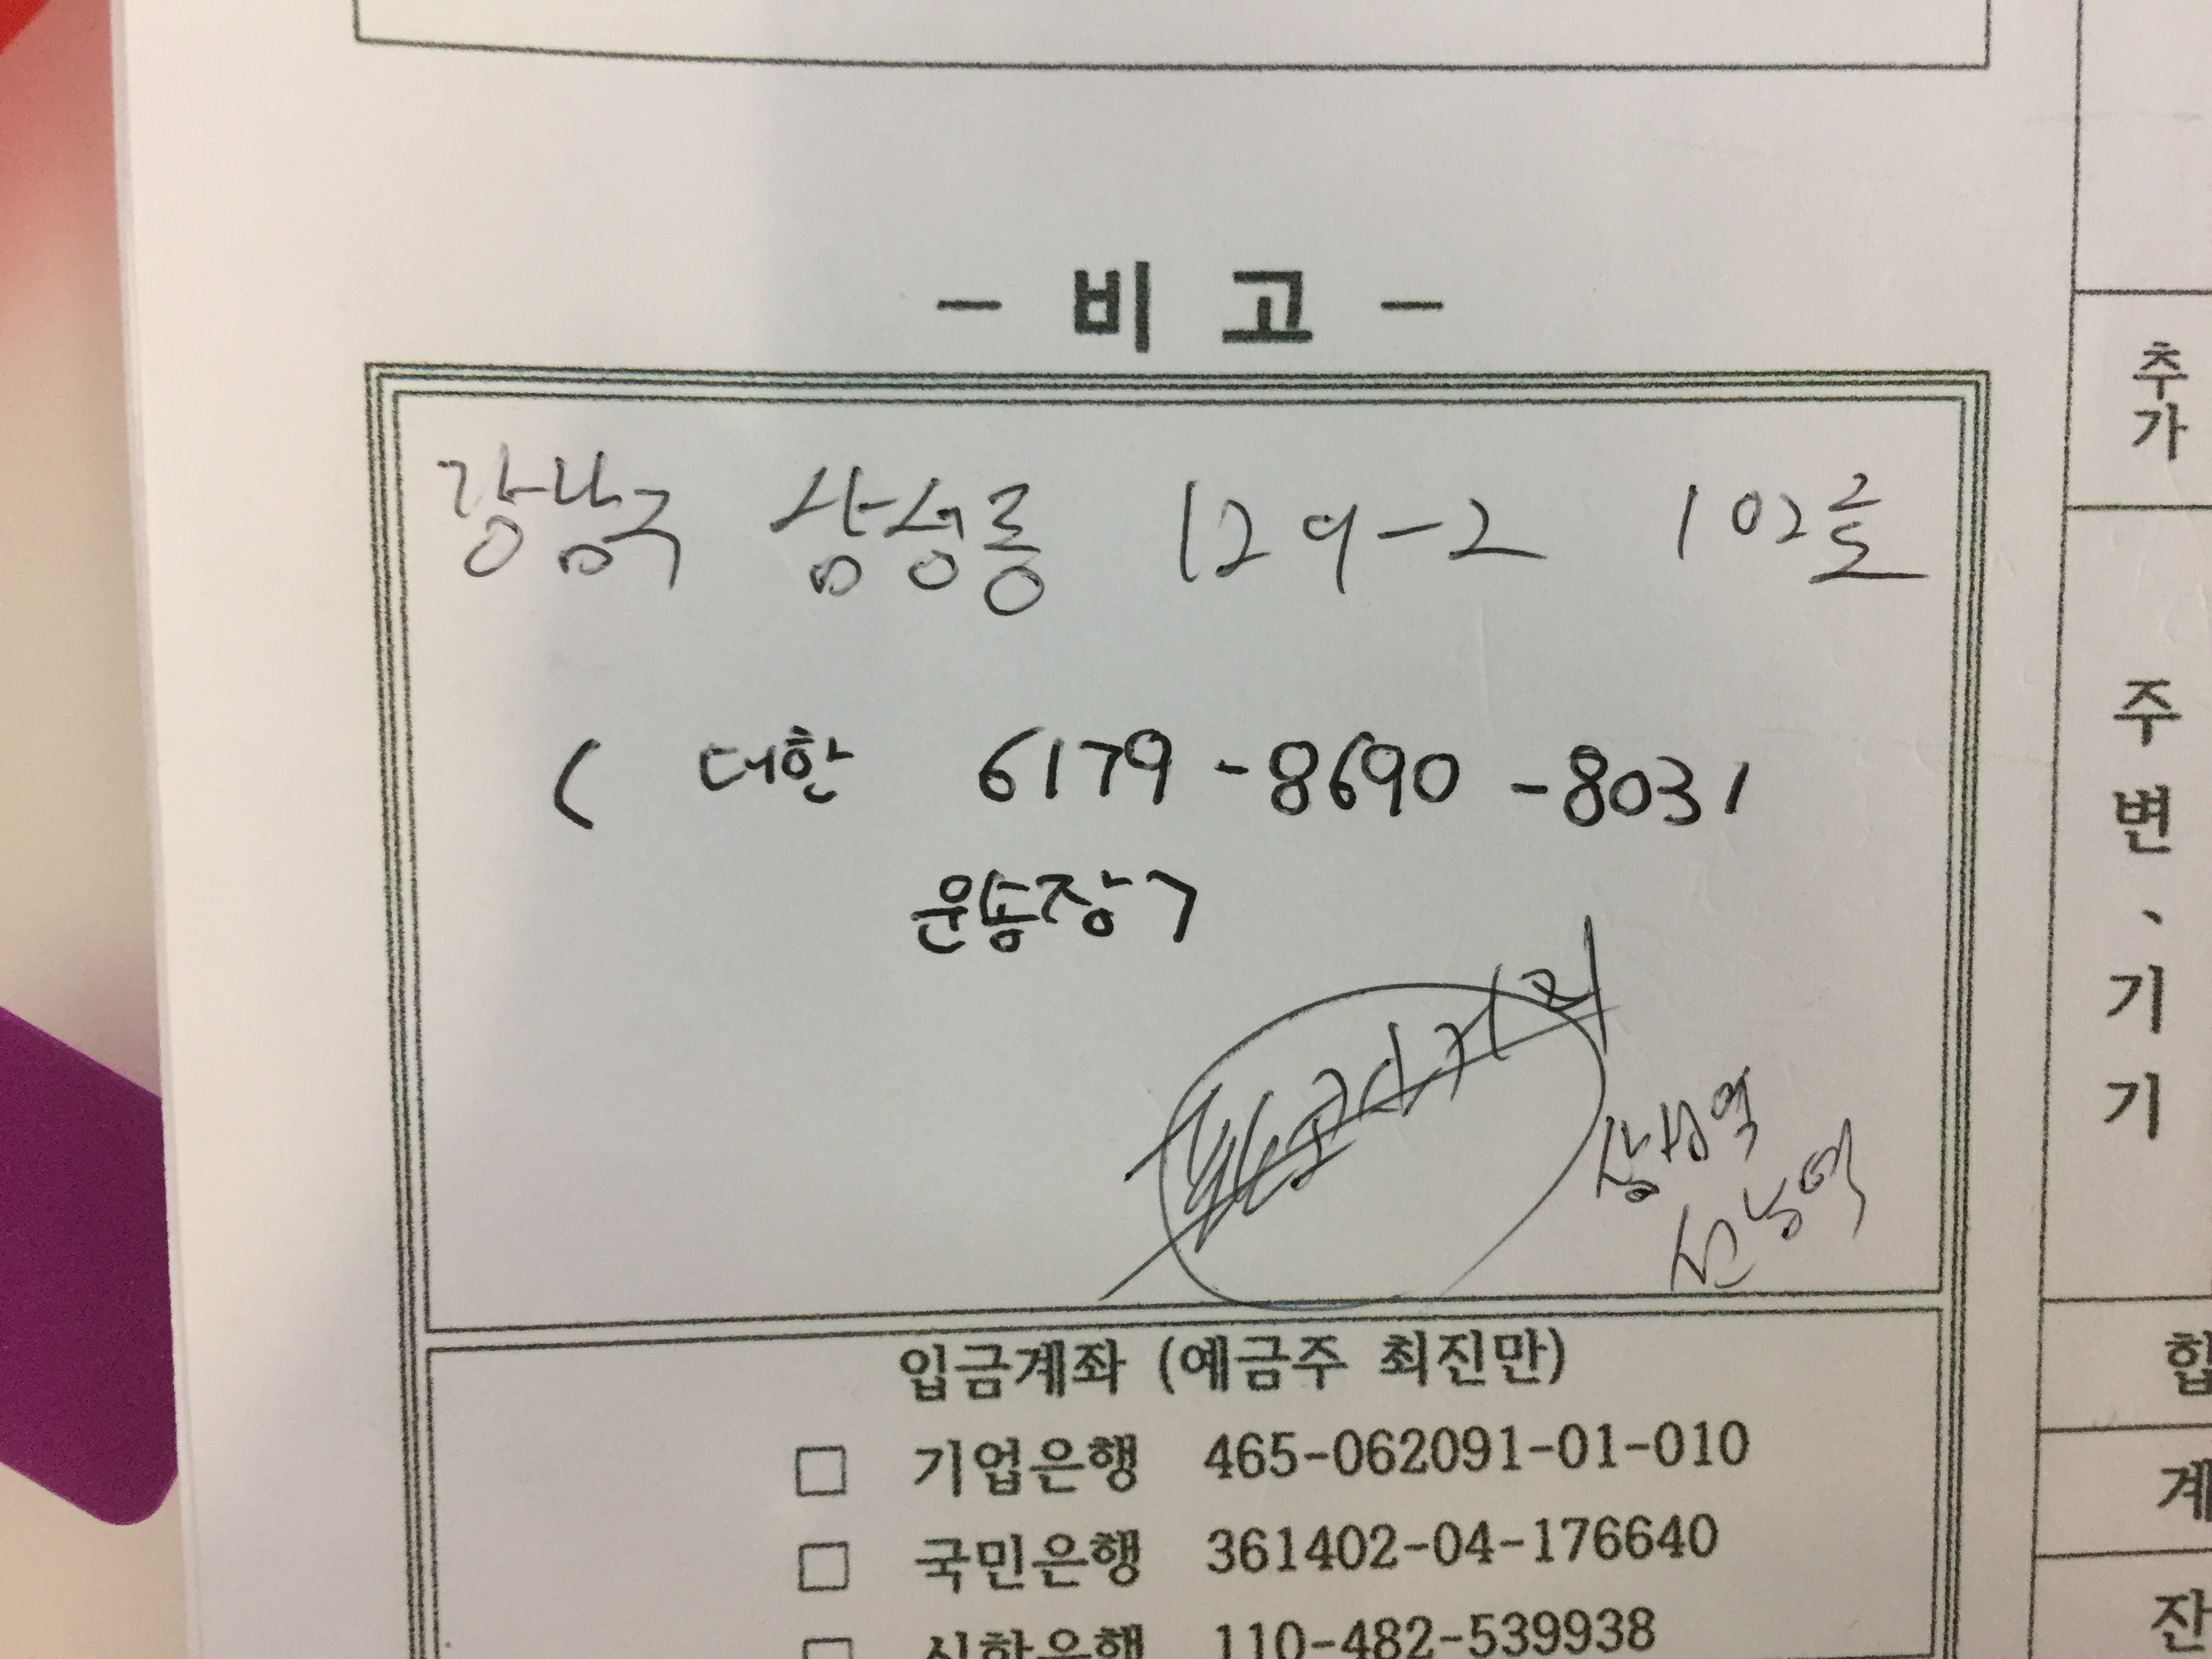 - 비 고 -
강남구 삼성동 129-2 102호
( 대한 6179-8690-8031
운송장)
삼성역
선릉역
입금계좌 (예금주 최진만)
□ 기업은행 465-062091-01-010
□ 국민은행 361402-04-176640
□ 신한은행 110-482-539938
추가
주변、기기
합
계
잔